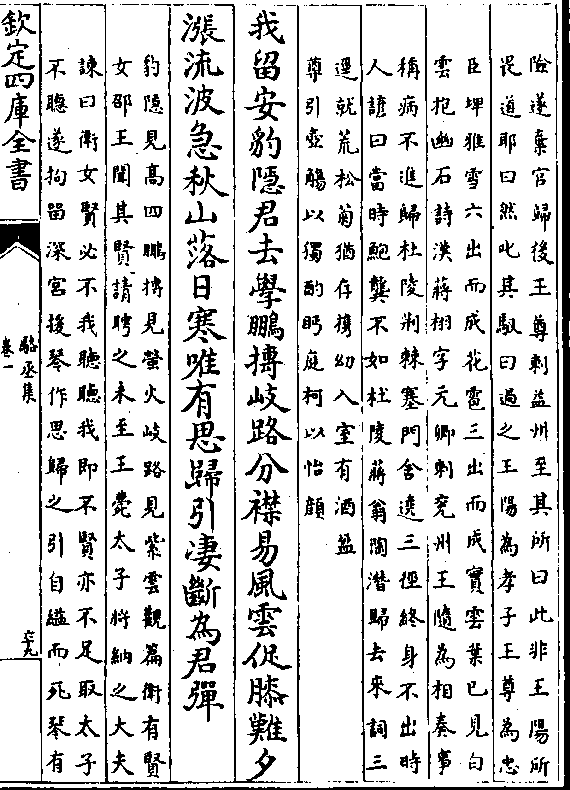 險遂棄官歸後王尊刺益州至其所曰此非王陽所
畏道耶曰然叱其馭曰過之王陽為孝子王尊為忠
臣埤雅雪六出而成花雹三出而成實雲葉已見白
雲抱幽石詩漢蔣栩字元卿刺兗州王隨為相奏事
稱病不進歸杜陵荆棘塞門舍遶三徑終身不出時
人諺曰當時鮑龔不如杜陵蔣翁陶潛歸去來詞三
逕就荒松菊猶存攜幼入室有酒盈
尊引壺觴以獨酌眄庭柯以怡顔
我留安豹隱君去學鵬摶岐路分襟易風雲促膝難夕
漲流波急秋山落日寒唯有思歸引凄斷為君彈
豹隱見高四鵬摶見螢火岐路見紫雲觀篇衛有賢
女邵王聞其賢請聘之未至王薨太子將納之大夫
諫曰衛女賢必不我聽聽我即不賢亦不足取太子
不聽遂拘留深宫援琴作思歸之引自縊而死琴有
欽定四庫全書
駱丞集
卷一